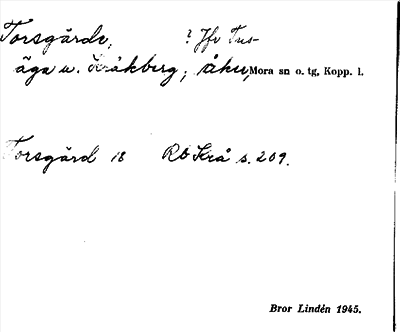 Torsgårde, ? Jfr Tus-
äga u. Kråkberg; åker, Mora sn o. tg, Kopp. l.
Torsgård 18 RO Krå s. 209.
Bror Lindén 1945.